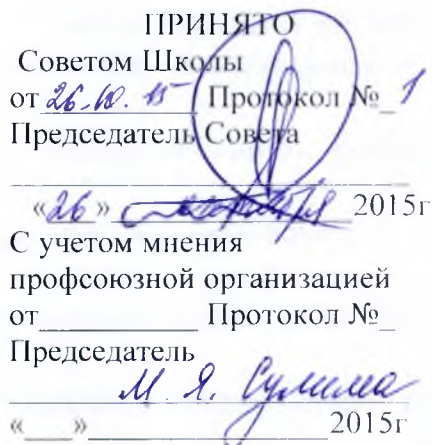 ПРИНЯТО
Советом Школы
от 26.10.15 Протокол №_1
Председатель Совета
«26» 2015г
С учетом мнения
профсоюзной организацией
от__________ Протокол №_
Председатель
М. Я. Сулима
«___»______________2015г